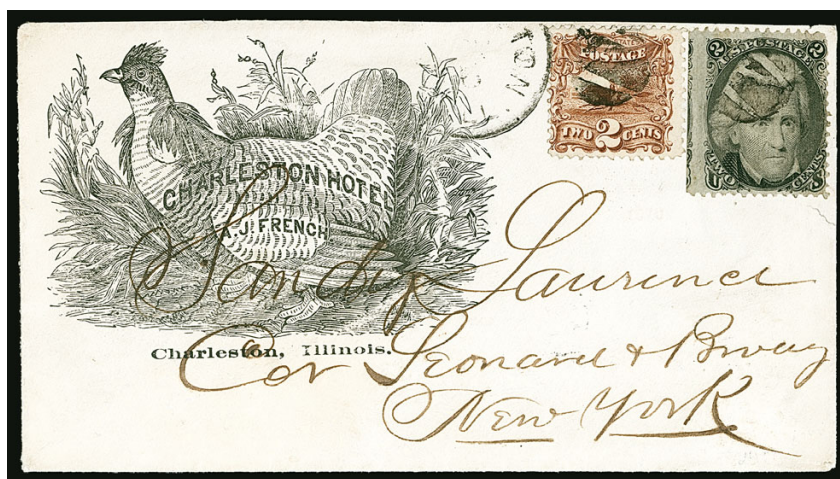 CHARLESTON HOTEL
A. J. FRENCH
Charleston, Illinois.
POSTAGE
TWO 2 CENTS
2 U.S. POSTAGE 2
TWO CENTS
Laurence
Cor Leonard & Bway
New York